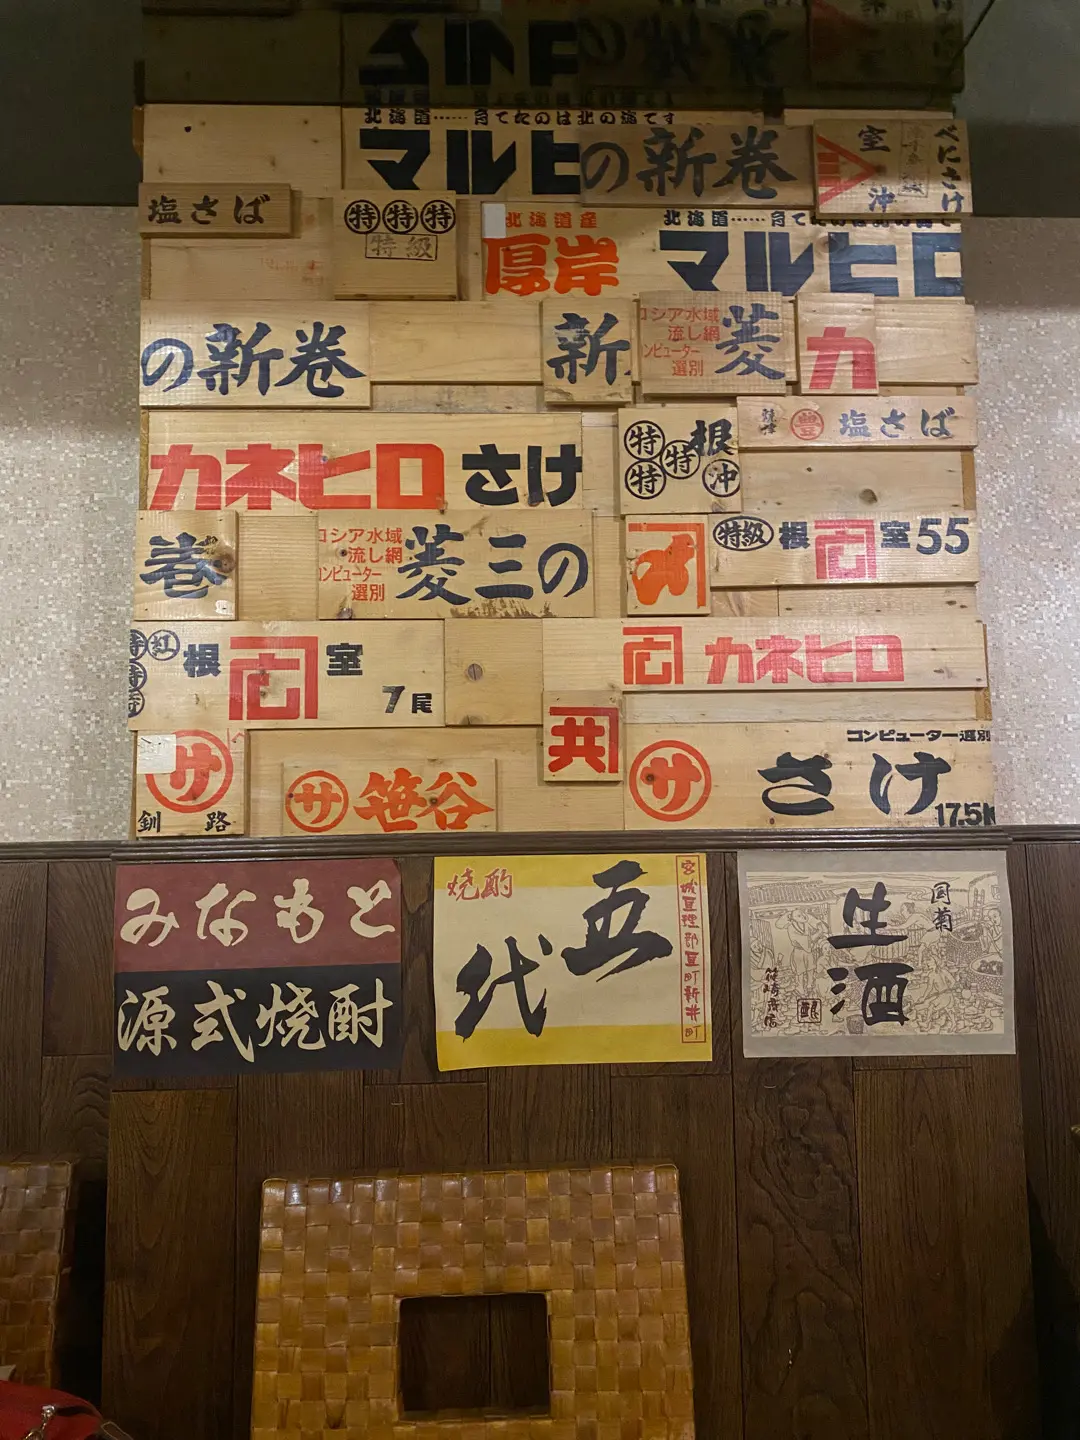 北海道……育てたのは北の海です
マルヒ
の新巻
室
沖
べにさけ
塩さば
特特特
特級
北海道産
厚岸
北海道……育てたのは
マルヒロ
の新巻
新
ロシア水域
流し網
ンピューター
選別
菱
カ
カネヒロ さけ
特特特
根
沖
豊 塩さば
巻
ロシア水域
流し網
ンピューター
選別
菱三の
特級 根 室 55
紅 根 室
7尾
カネヒロ
共
サ
釧 路
サ 笹谷
コンピューター選別
サ さけ
17.5
みなもと
源式焼酎
焼酌
五代
宮城亘理郡亘町新井町
国菊
生酒